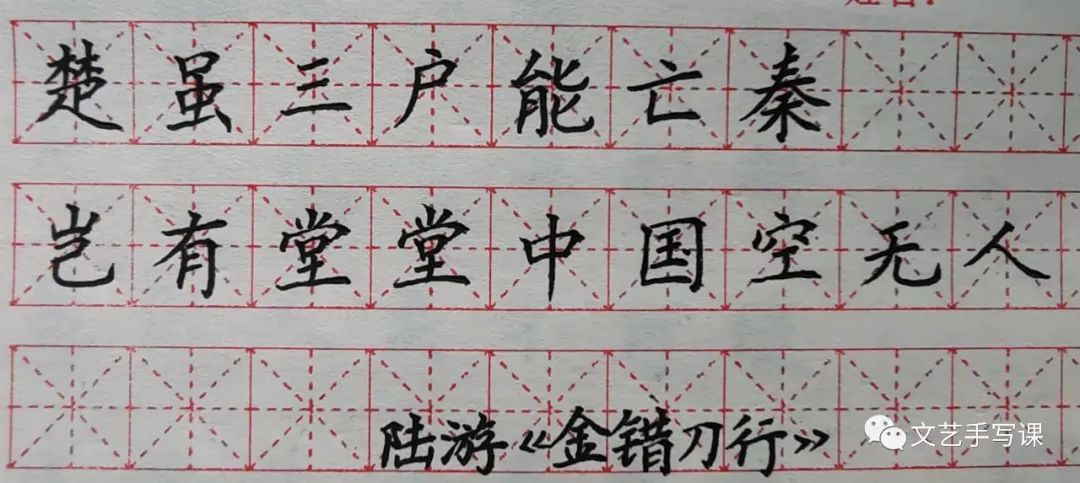 楚虽三户能亡秦
岂有堂堂中国空无人
陆游《金错刀行》
文艺手写课